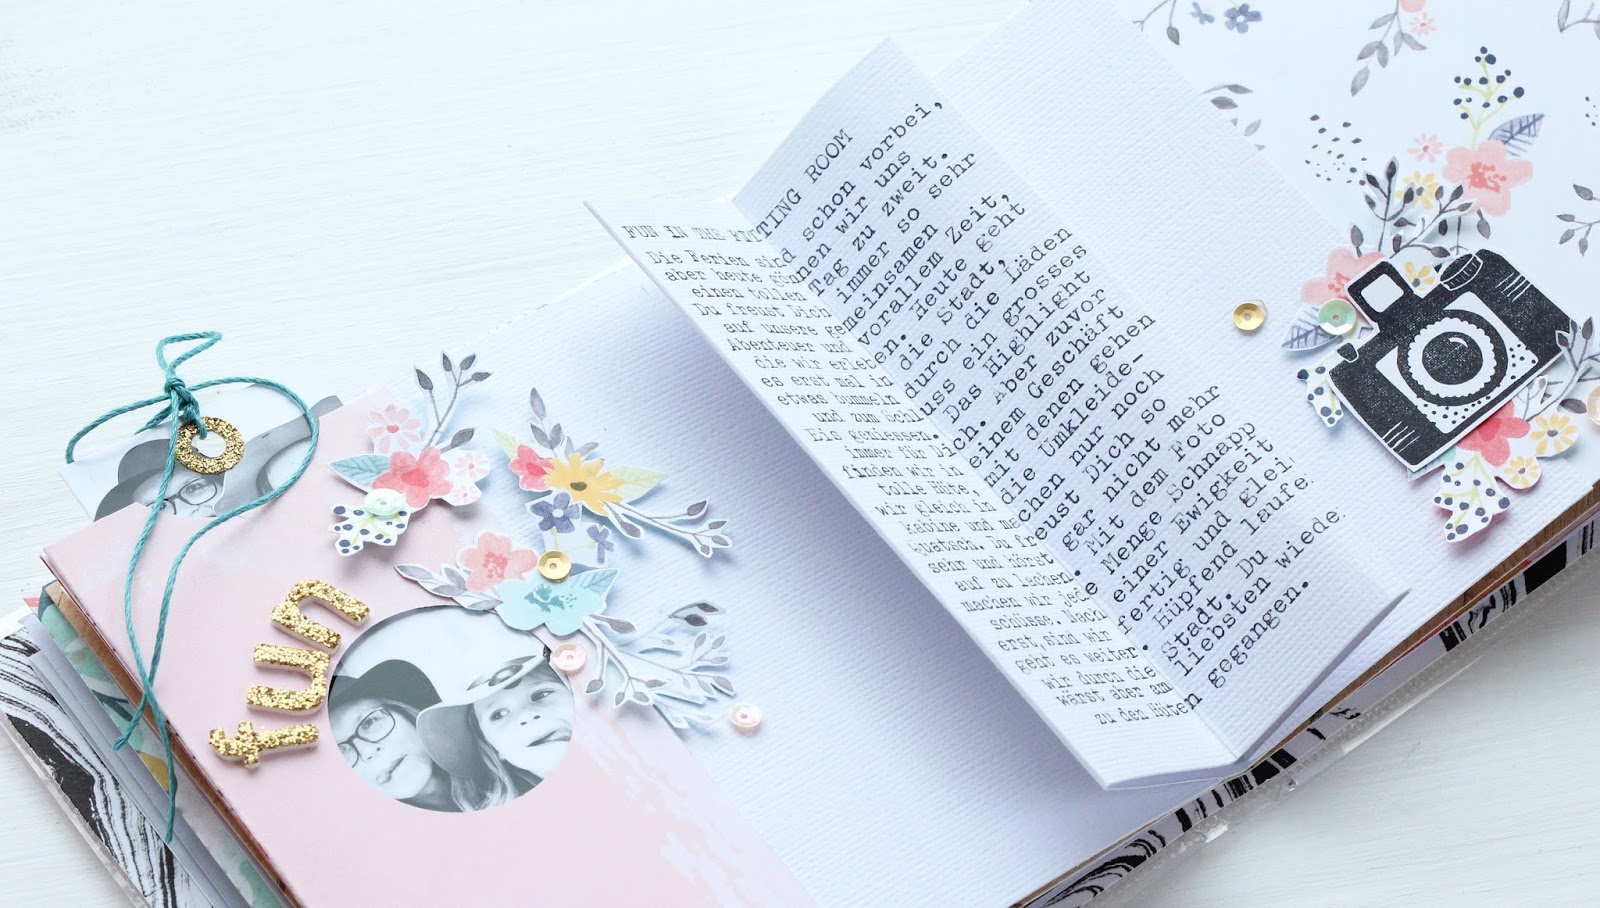 fun
FUN IN THE FITTING ROOM
Die Ferien sind schon vorbei,
aber heute gönnen wir uns
einen tollen Tag zu zweit.
Du freust Dich immer so sehr
auf unsere gemeinsamen
Abenteuer und vorallem Zeit,
die wir erleben. Heute geht
es erst mal in die Stadt,
etwas bummeln durch die Läden
und zum Schluss ein grosses
Eis geniessen. Das Highlight
immer für Dich. Aber zuvor
finden wir in einem Geschäft
tolle Hüte, mit denen gehen
wir gleich in die Umkleide-
kabine und machen nur noch
Quatsch. Du freust Dich so
sehr und hörst gar nicht mehr
auf zu lachen. Mit dem Foto
machen wir jede Menge Schnapp
schüsse. Nach einer Ewigkeit
erst,sind wir fertig und glei
geht es weiter. Hüpfend laufe
wir durch die Stadt. Du
wärst aber am liebsten wiede
zu den Hüten gegangen.